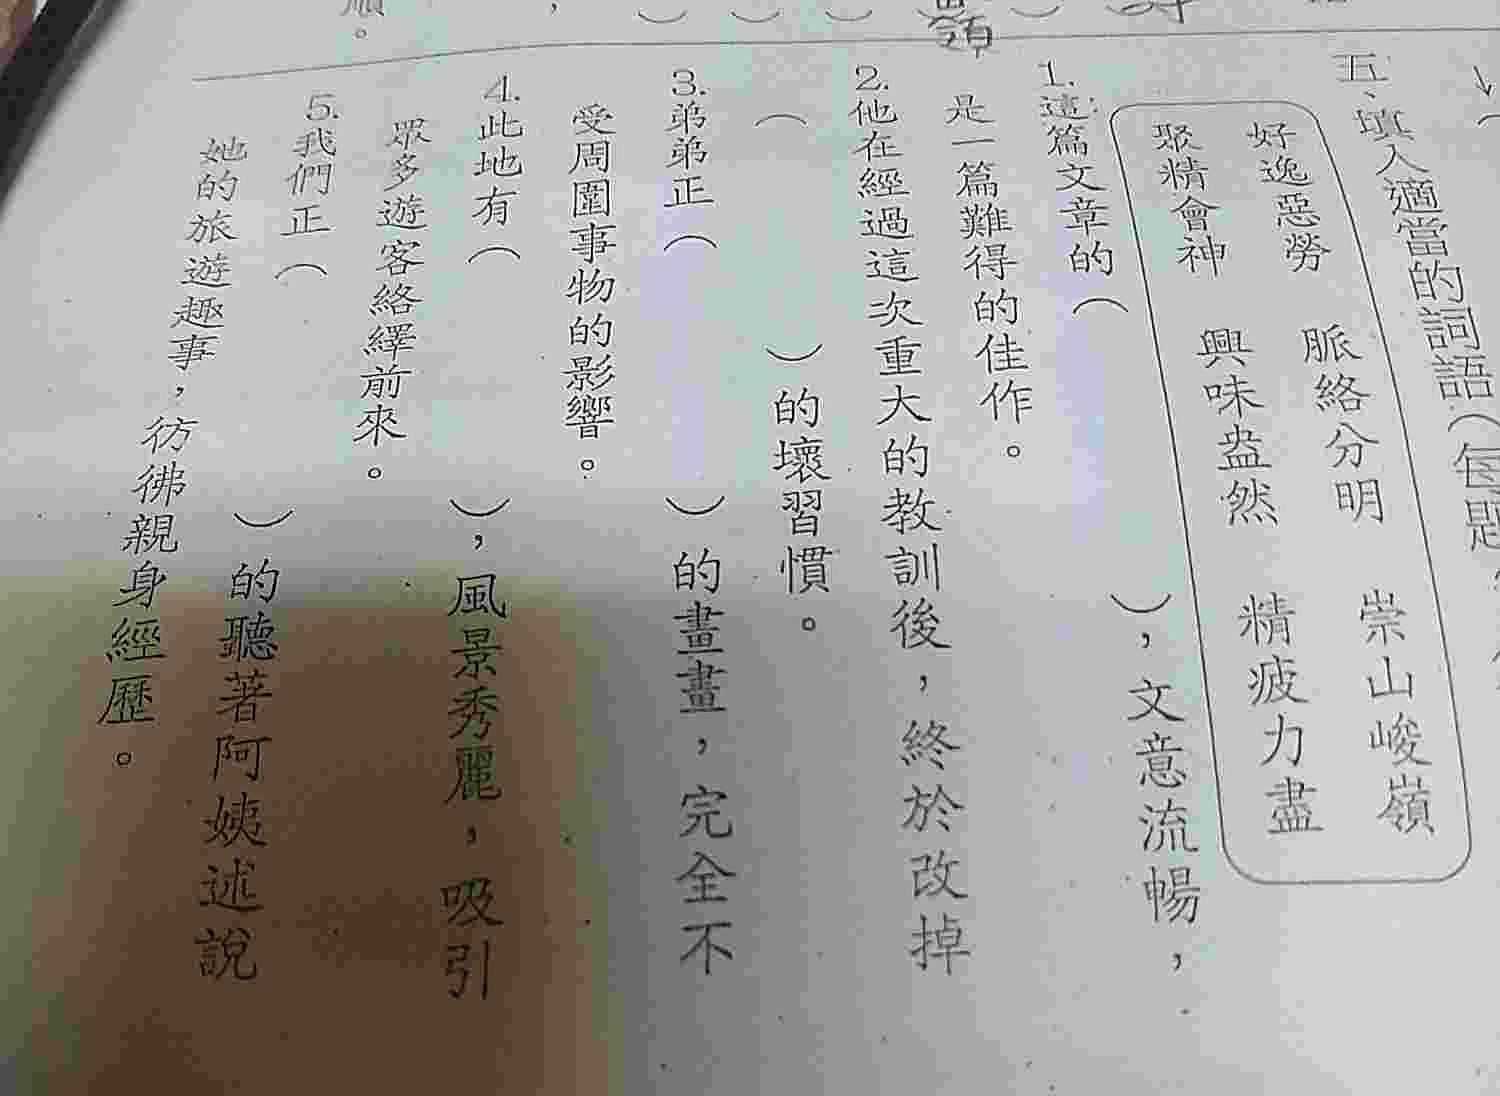 五、填入適當的詞語（每題
好逸惡勞　脈絡分明　崇山峻嶺
聚精會神　興味盎然　精疲力盡
1.這篇文章的（　　　　），文意流暢，
是一篇難得的佳作。
2.他在經過這次重大的教訓後，終於改掉
（　　　　）的壞習慣。
3.弟弟正（　　　　）的畫畫，完全不
受周圍事物的影響。
4.此地有（　　　　），風景秀麗，吸引
眾多遊客絡繹前來。
5.我們正（　　　　）的聽著阿姨述說
她的旅遊趣事，彷彿親身經歷。